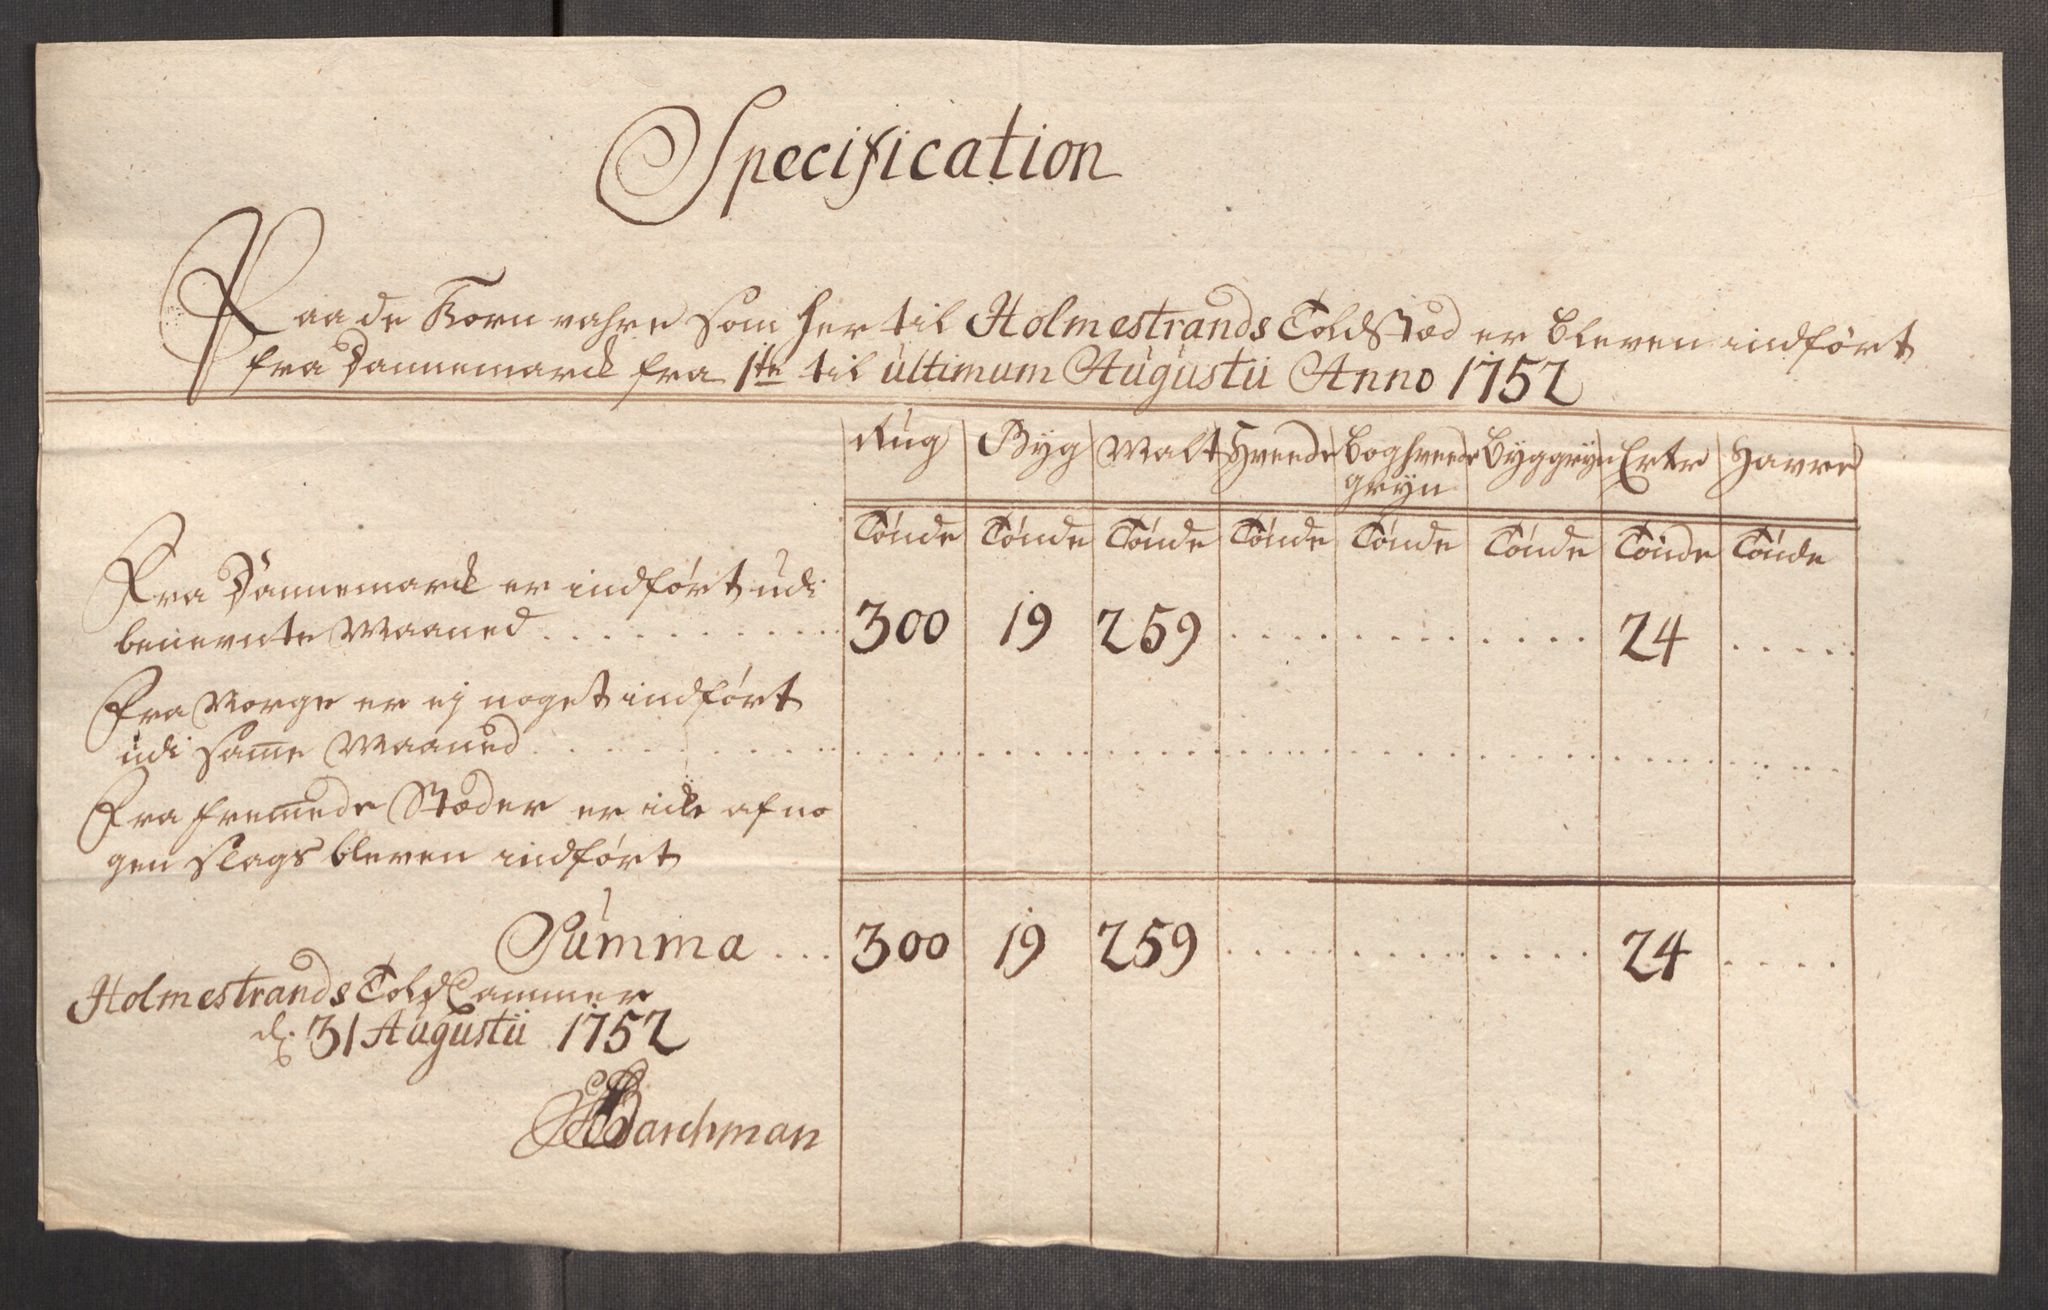 Specification
Raade Korn vahre som her til Holmestrands Toldstæd er bleven indført
fra Dannemarck fra 1te til ultimum Augustii Anno 1752
Rug Byg Malt Hvede Boghvede Byggryn Erter Havre
gryn
Tønde Tønde Tønde Tønde Tønde Tønde Tønde Tønde
Fra Dannemarck er indført udi
benevnte Maaned 300 19 259 24
Fra Norge er ej noget indført
udi same Maaned
Fra fremede Stæder er icke af no
gen slags bleven indført
Summa 300 19 259 24
Holmestrands Told Cammer
d. 31 Augustii 1752
Barchman